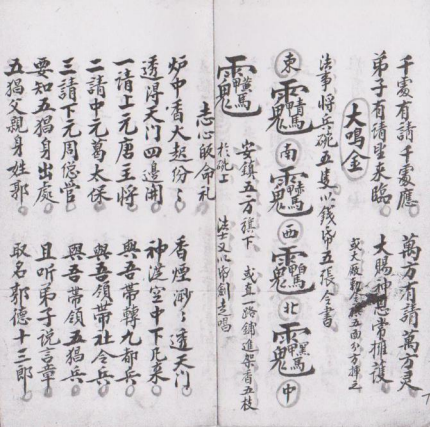 千處有請千處應 萬方有請萬方灵
弟子有請望来臨 大賜神恩常擁護
大鳴金
五面分方插之
法事将兵碗五隻以錢帋五張令書
東 南 西 北 中
安鎮五方旗下 或直一路鋪進架香五枝
法又以帋劍走唱
志心皈命礼
炉中香火起份〻 香煙渺〻透天門
透得天门四邊開 神灵空中下凡来
一請上元唐王将 與吾帶轉九郎兵
二請中元葛太保 與吾領帶社令兵
三請下元周億官 與吾帶領五猖兵
要知五猖身出處 且听弟子説言章
五猖父親身姓郭 取名郭德十三郎